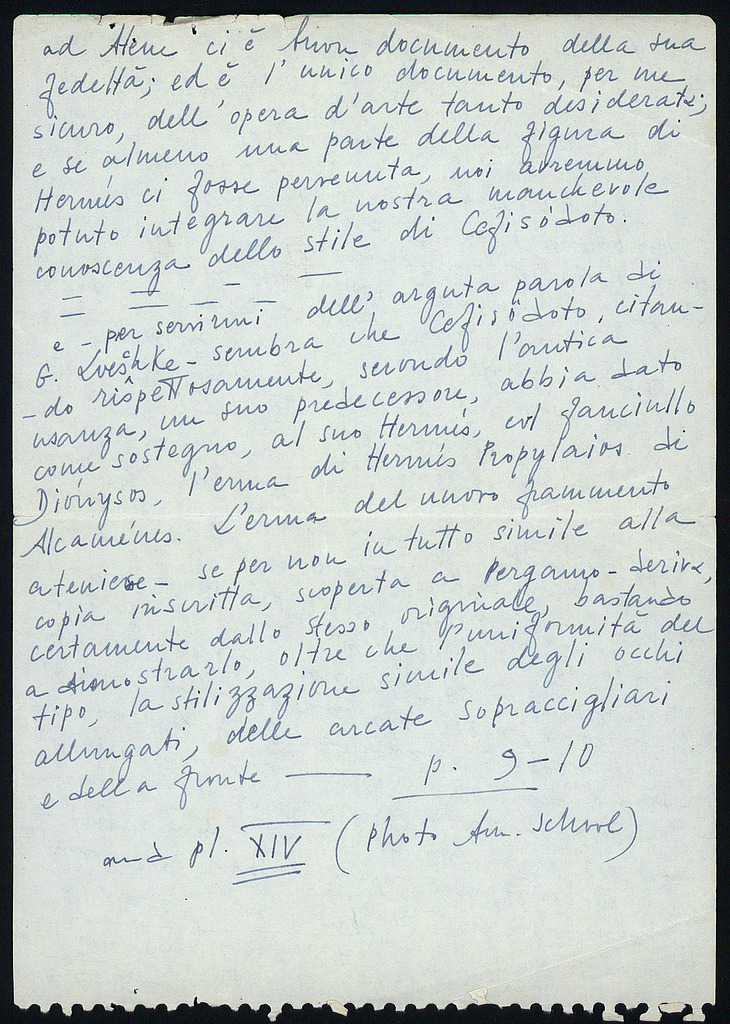 ad Atene ci è buon documento della sua
fedeltà; ed è l'unico documento, per me
sicuro, dell'opera d'arte tanto desiderata;
e se almeno una parte della figura di
Hermés ci fosse pervenuta, noi avremmo
potuto integrare la nostra manchevole
conoscenza dello stile di Cefisòdoto.
e - per servirmi dell'arguta parola di
G. Lveškke - sembra che Cefisòdoto, citan-
-do rispettosamente, secondo l'antica
usanza, un suo predecessore, abbia dato
come sostegno, al suo Hermés, col fanciullo
Diónysos, l'erma di Hermés Propylaios di
Alcaménes. L'erma del nuovo frammento
ateniese - se per non in tutto simile alla
copia inscritta, scoperta a Pergamo - deriva,
certamente dallo stesso originale, bastando
a dimostrarlo, oltre che l'uniformità del
tipo, la stilizzazione simile degli occhi
allungati, delle arcate sopraccigliari
e della fronte —— p. 9-10
and pl. XIV (Photo Am. School)